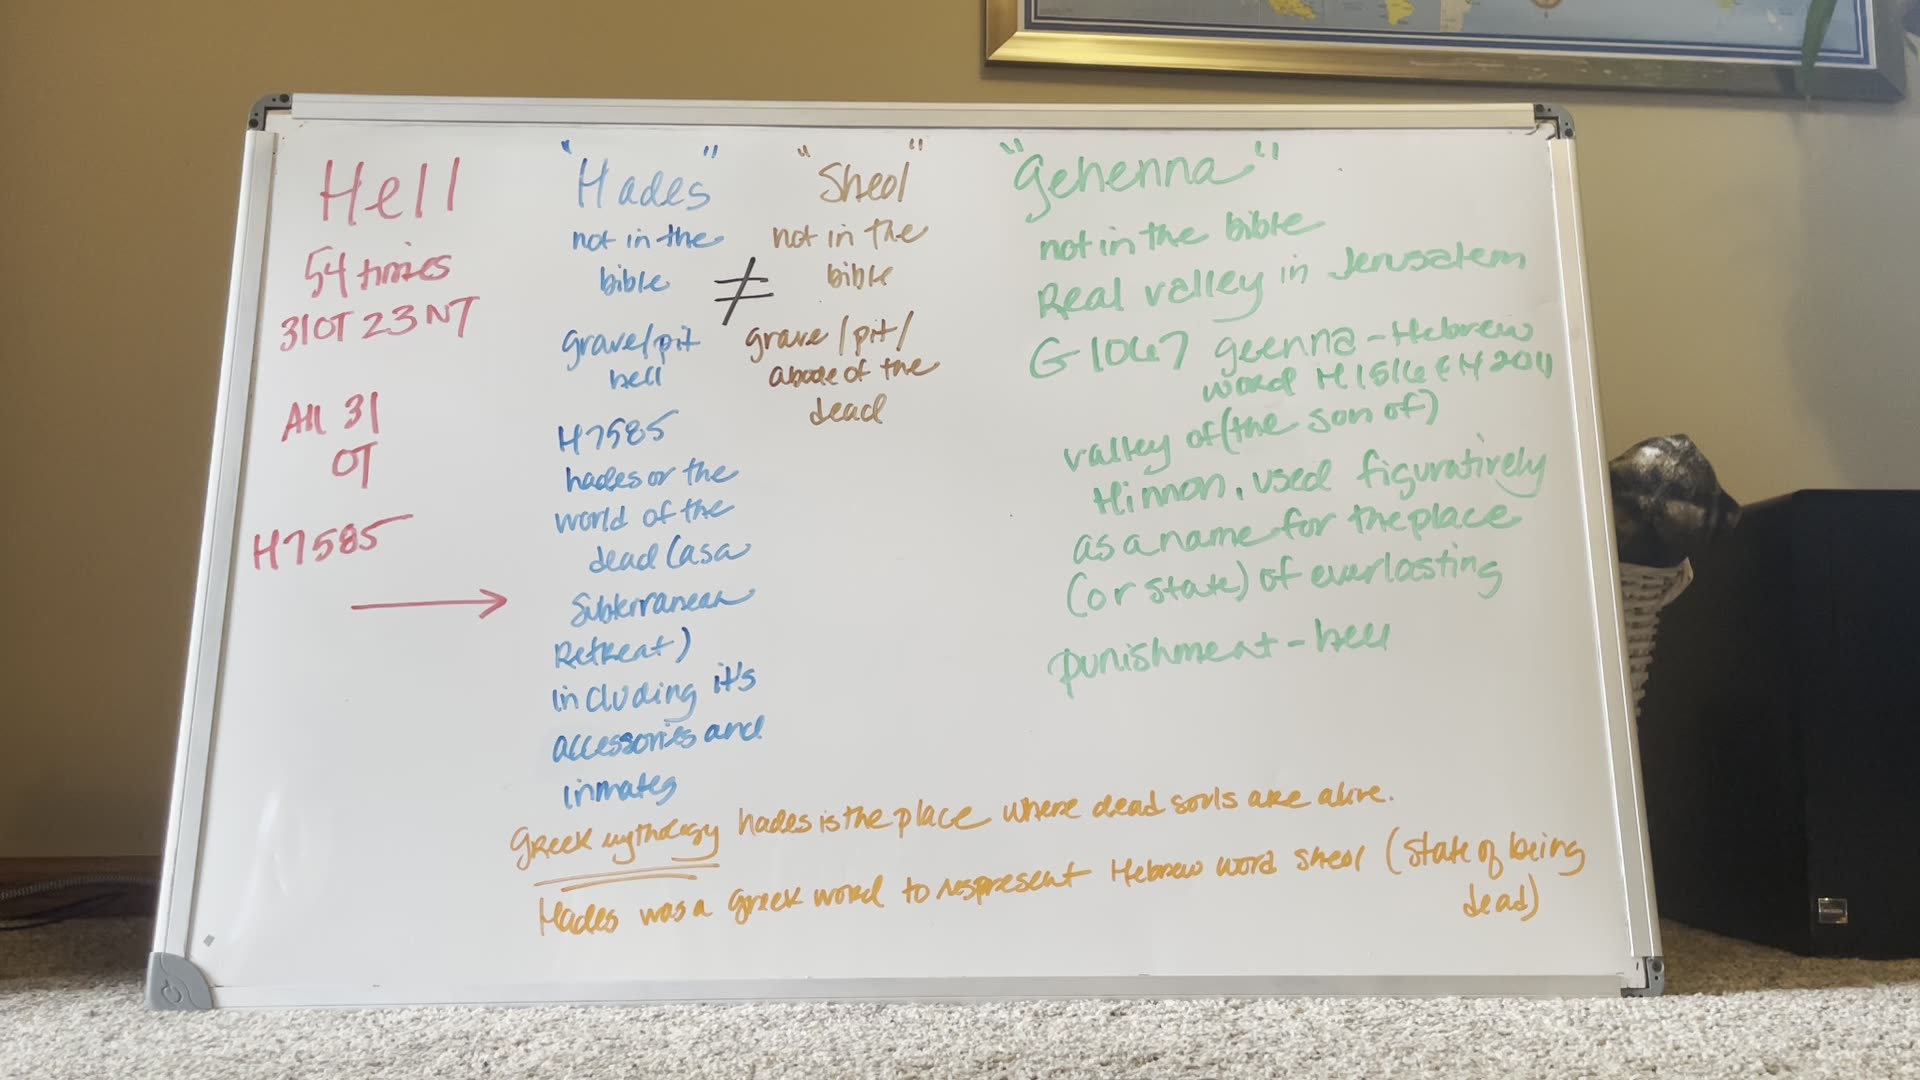 Hell
54 times
31 OT 23 NT
All 31
OT
H7585
"Hades"
not in the
bible
grave/pit
hell
H7585
hades or the
world of the
dead (as a
Subterranean
Retreat)
including it's
accessories and
inmates
≠
"Sheol"
not in the
bible
grave/pit/
abode of the
dead
"Gehenna"
not in the bible
Real valley in Jerusalem
G1067 geenna - Hebrew
word H1516 & H2011
valley of (the son of)
Hinnon, used figuratively
as a name for the place
(or state) of everlasting
punishment - hell
Greek mythology hades is the place where dead souls are alive.
Hades was a greek word to respresent Hebrew word sheol (state of being
dead)